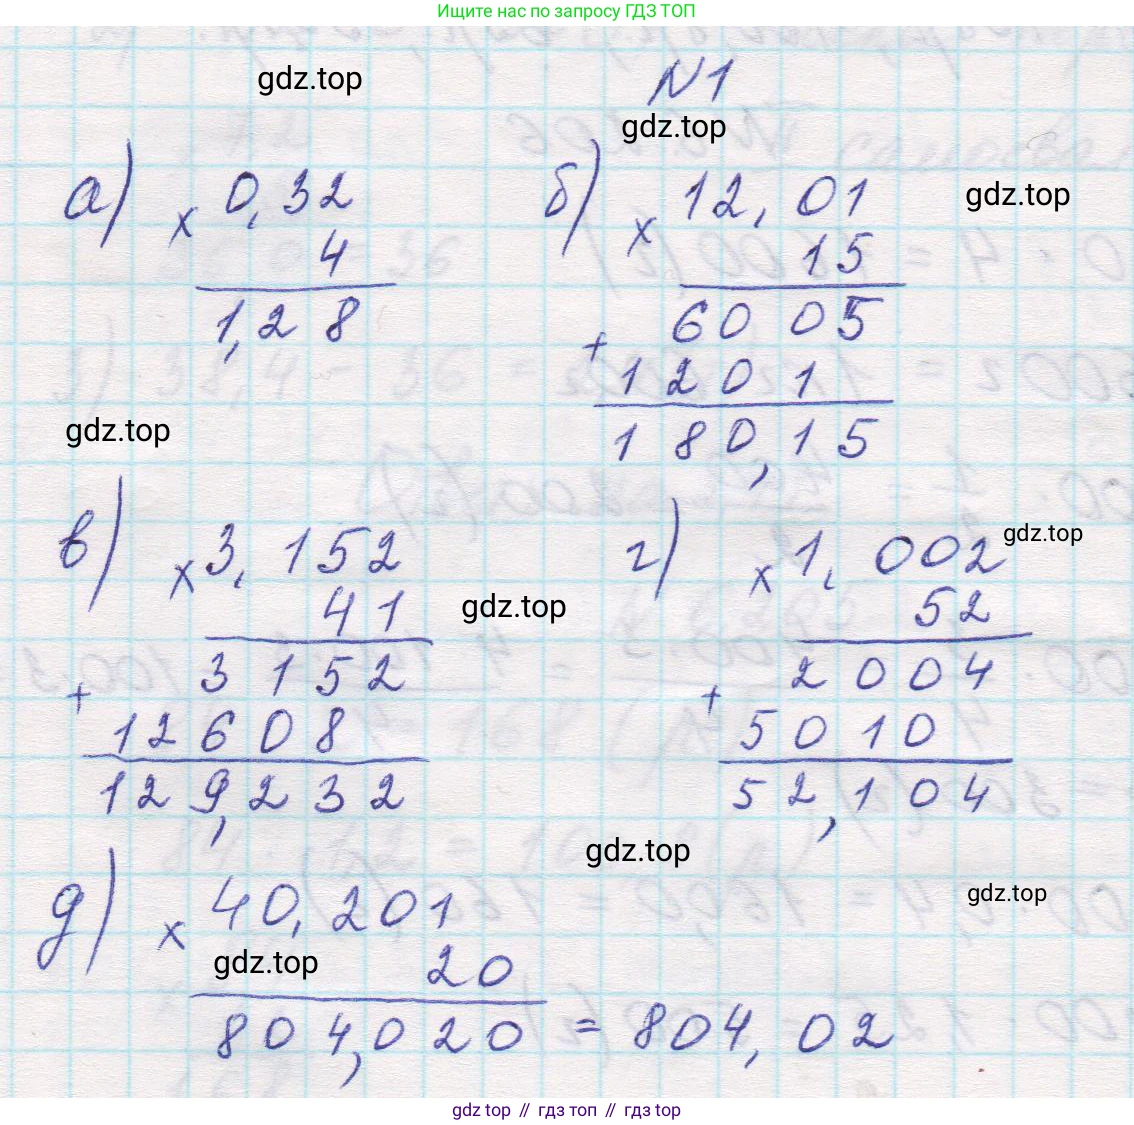 Ищите нас по запросу ГДЗ ТОП
gdz.top
N1
gdz.top
а) × 0,32
4
1,28
б) × 12,01
15
6005
+
1201
180,15
gdz.top
gdz.top
в) × 3,152
41
3152
+
12608
129,232
gdz.top
г) × 1,002
52
2004
+
5010
52,104
gdz.top
gdz.top
д) × 40,201
20
804,020 = 804,02
gdz.top
gdz.top
gdz top // гдз топ // гдз top